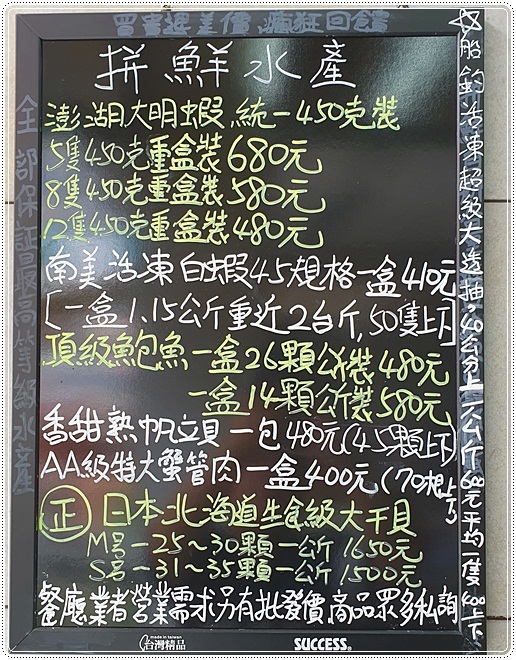 買貴退差價,瘋狂回饋
拼鮮水產
澎湖大明蝦,統一450克裝
5隻450克重盒裝680元
8隻450克重盒裝580元
12隻450克重盒裝480元
南美活凍白蝦45規格一盒410元
[一盒1.15公斤重近2台斤,50隻上下]
頂級鮑魚一盒26顆公斤裝480元
一盒14顆公斤裝580元
香甜熟帆立貝一包480元(45顆上下)
AA級特大蟹管肉一盒400元(70根上下)
正 日本北海道生食級大干貝
M号-25~30顆一公斤1650元
S号-31~35顆一公斤1500元
餐廳業者營業需求另有批發價,商品眾多私詢
全部保證最高等級水產
☆船釣活凍超級大透抽,40公分上一公斤600元平均一隻400上下
made in taiwan
台灣精品
SUCCESS